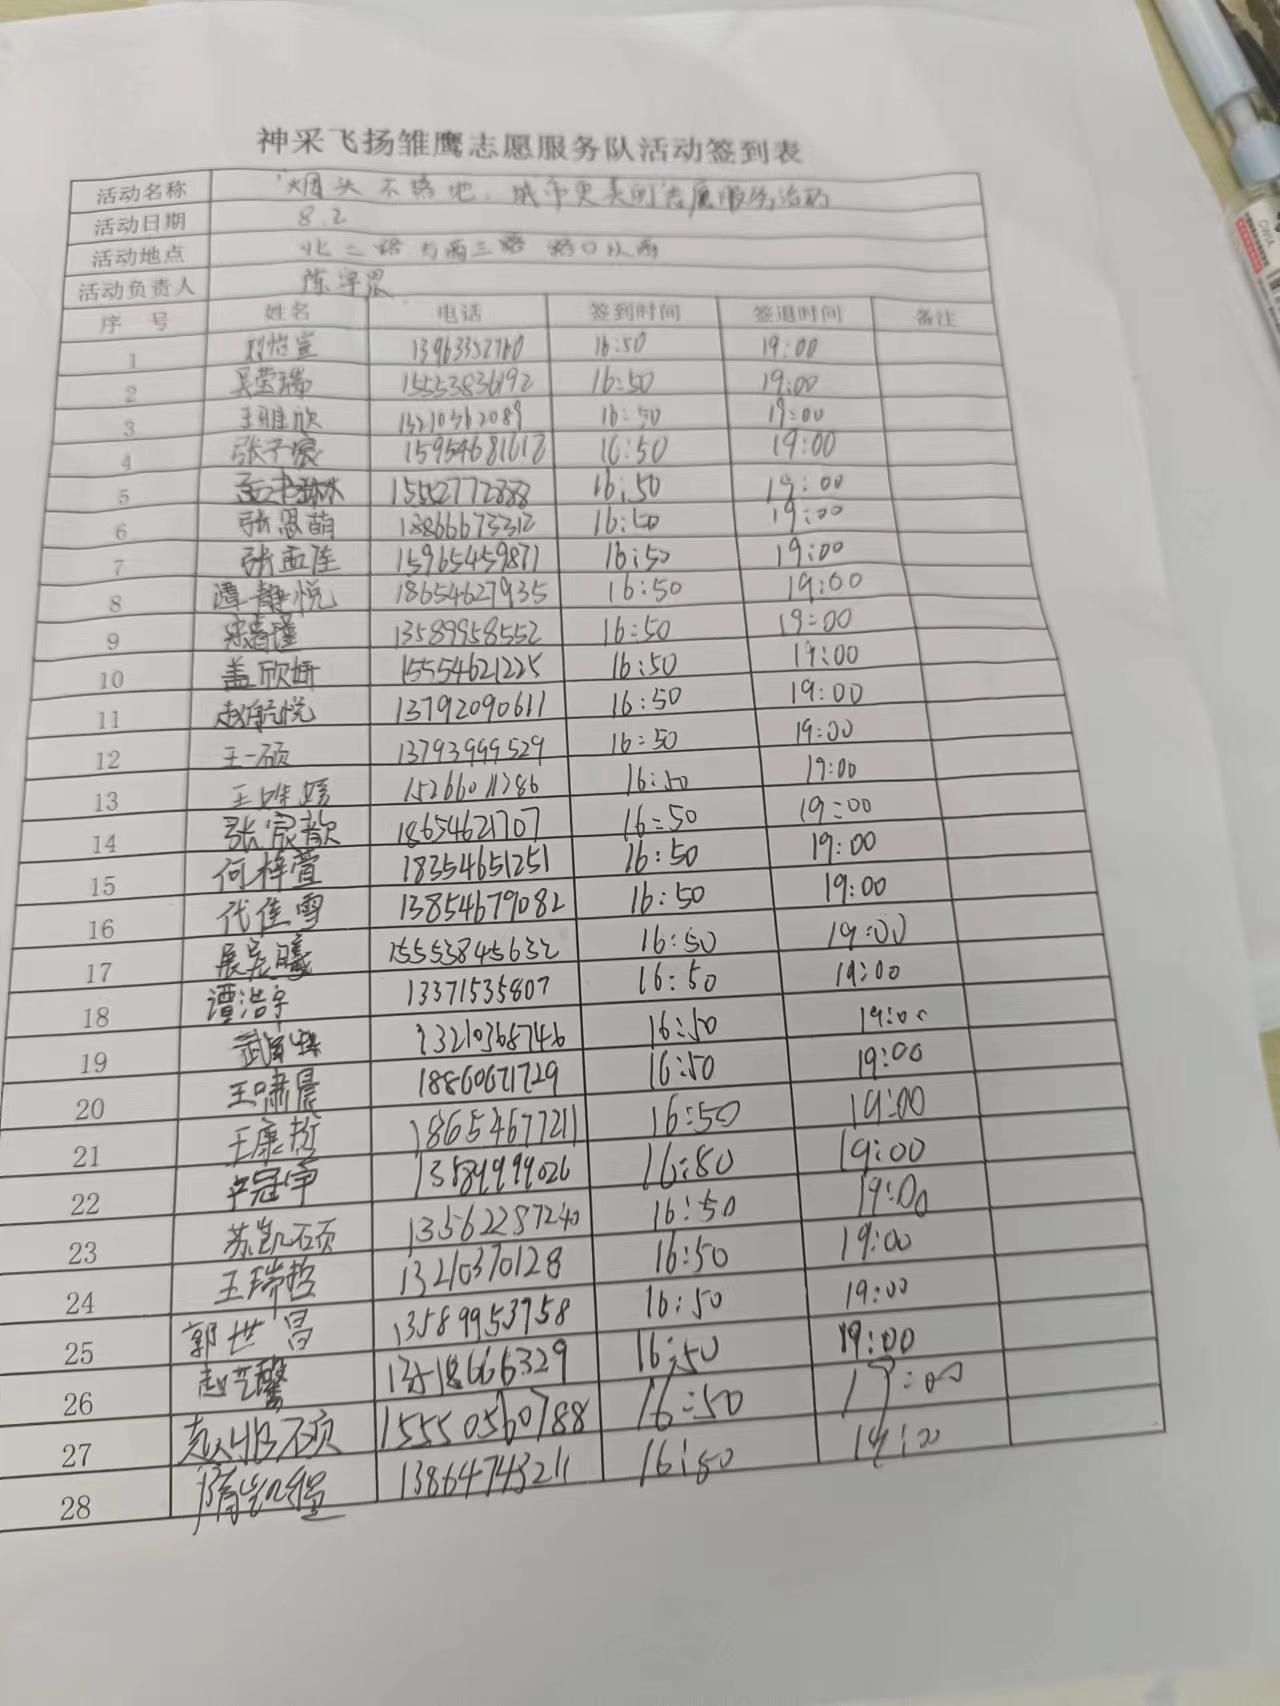 神采飞扬雏鹰志愿服务队活动签到表
活动名称 烟头不落地，城市更美丽志愿服务活动
活动日期 8.2
活动地点 北二路与西三路 路口以西
活动负责人 陈宇
序 号 姓名 电话 签到时间 签退时间 备注
1 刘怡萱 13963352760 16:50 19:00
2 吴莹瑞 15553836192 16:50 19:00
3 王雅欣 13210362089 16:50 19:00
4 张子豪 15954681612 16:50 19:00
5 15552772888 16:50 19:00
6 张恩萌 18866673312 16:50 19:00
7 张孟佳 15965459871 16:50 19:00
8 谭静悦 18654627935 16:50 19:00
9 13589958552 16:50 19:00
10 盖欣妍 15554621225 16:50 19:00
11 赵航悦 13792090611 16:50 19:00
12 王一硕 13793999529 16:50 19:00
13 王 15266011286 16:50 19:00
14 张宸歆 18654621707 16:50 19:00
15 何梓萱 18354651251 16:50 19:00
16 代佳雪 13854679082 16:50 19:00
17 展 曦 15553845632 16:50 19:00
18 谭浩宇 13371535807 16:50 19:00
19 武 13210368746 16:50 19:00
20 王啸晨 18860671729 16:50 19:00
21 王康哲 18654677211 16:50 19:00
22 冠 13589999026 16:50 19:00
23 苏凯硕 13562287240 16:50 19:00
24 王瑞哲 13210370128 16:50 19:00
25 郭世昌 13589953758 16:50 19:00
26 赵艺馨 16:50 19:00
27 硕 15550560788 16:50 19:00
28 隋 13864743211 16:50 19:00